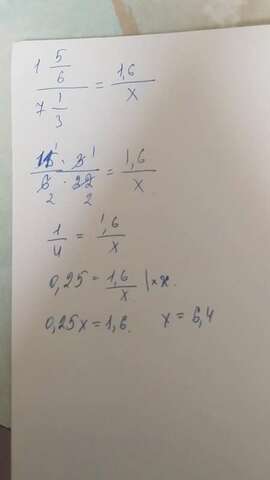 1 5/6 / 7 1/3 = 1,6 / x
11 · 3 / 6 · 22 = 1,6 / x
1/4 = 1,6 / x
0,25 = 1,6 / x | × x.
0,25x = 1,6. x = 6,4